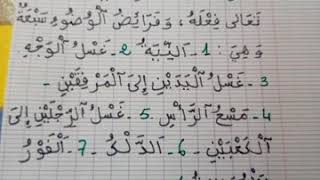 تَعَالَى فِعْلَهُ، وَفَرَائِضُ الْوُضُوءِ سَبْعَةٌ
وَهِيَ : 1- النِّيَّةُ 2- غَسْلُ الْوَجْهِ
3- غَسْلُ الْيَدَيْنِ إِلَى الْمَرْفِقَيْنِ -
4- مَسْحُ الرَّأْسِ 5- غَسْلُ الرِّجْلَيْنِ إِلَى
الْكَعْبَيْنِ - 6- الدَّلْكُ - 7- الْفَوْرُ